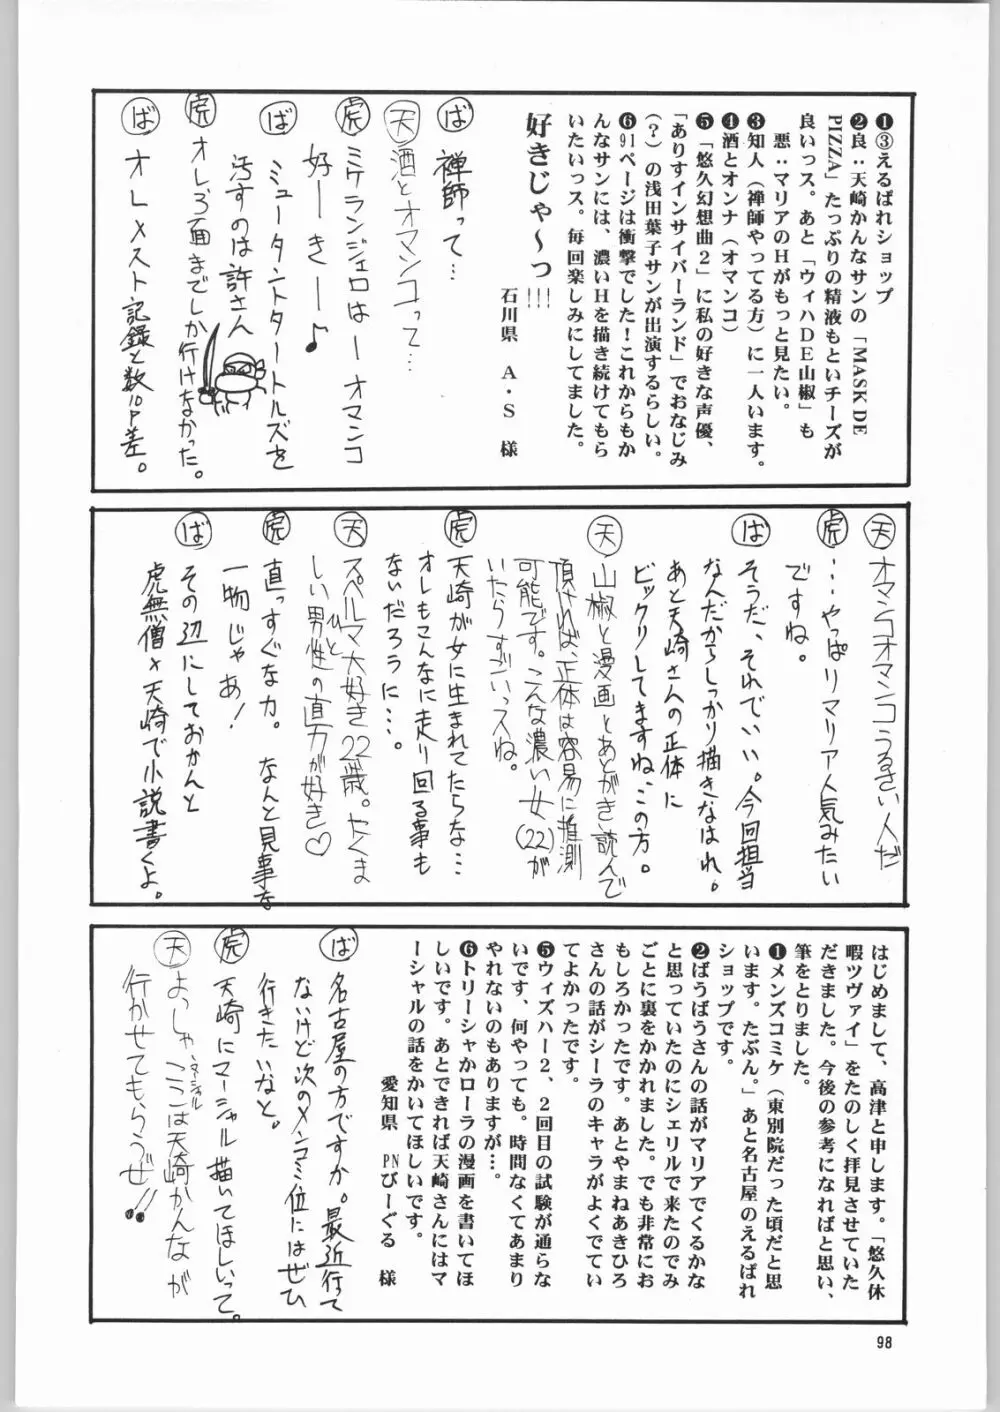 ❶③えるぱれショップ
❷良：天崎かんなサンの「MASK DE
PIZZA」たっぷりの精液もといチーズが
良いっス。あと「ウィハDE山椒」も
悪：マリアのHがもっと見たい。
❸知人（禅師やってる方）に一人います。
❹酒とオンナ（オマンコ）
❺「悠久幻想曲2」に私の好きな声優、
「ありすインサイバーランド」でおなじみ
（？）の浅田葉子サンが出演するらしい。
❻91ページは衝撃でした！これからもか
んなサンには、濃いHを描き続けてもら
いたいっス。毎回楽しみにしてました。
好きじゃ〜っ!!!
石川県　A・S　様
ば 禅師って…
天 酒とオマンコって…
虎 ミケランジェロはーオマンコ
好ーきー♪
ば ミュータントタートルズを
汚すのは許さん
虎 オレ3面までしか行けなかった。
ば オレメスト記録と数10P差。
天 オマンコオマンコうるさい人だ
虎 …やっぱりマリア人気みたい
ですね。
ば そうだ、それでいい。今回担当
なんだからしっかり描きなはれ。
あと天崎さんの正体に
ビックリしてますね、この方。
天 山椒と漫画とあとがき読んで
頂ければ、正体は容易に推測
可能です。こんな濃い女(22)が
いたらすごいっスね。
虎 天崎が女に生まれてたらな…
オレもこんなに走り回る事も
ないだろうに…。
天 スペルマ大好き22歳。たくま
しい男性の直力が好き♡
ひと
虎 直っすぐな力。なんと見事な
一物じゃあ！
ば その辺にしておかんと
虎無僧×天崎で小説書くよ。
はじめまして、高津と申します。「悠久休
暇ツヴァイ」をたのしく拝見させていた
だきました。今後の参考になればと思い、
筆をとりました。
❶メンズコミケ（東別院だった頃だと思
います。たぶん。」あと名古屋のえるぱれ
ショップです。
❷ばうばうさんの話がマリアでくるかな
と思っていたのにシェリルで来たのでみ
ごとに裏をかかれました。でも非常にお
もしろかったです。あとやまねあきひろ
さんの話がシーラのキャラがよくでてい
てよかったです。
❺ウィズハー2、2回目の試験が通らな
いです、何やっても。時間なくてあまり
やれないのもありますが…。
❻トリーシャかローラの漫画を書いてほ
しいです。あとできれば天崎さんにはマ
ーシャルの話をかいてほしいです。
愛知県　PNびーぐる　様
ば 名古屋の方ですか。最近行って
ないけど次のメンコミ位にはぜひ
行きたいなと。
虎 天崎にマーシャル描いてほしいって。
天 よっしゃ、ここは天崎かんなが
マーシャル
行かせてもらうぜ!!
98